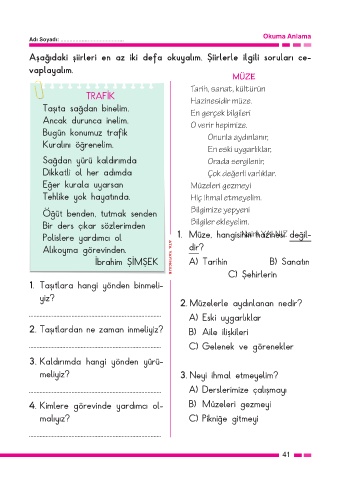 Adı Soyadı: ....................................
Okuma Anlama
Aşağıdaki şiirleri en az iki defa okuyalım. Şiirlerle ilgili soruları ce-
vaplayalım.
TRAFİK
Taşıta sağdan binelim.
Ancak durunca inelim.
Bugün konumuz trafik
Kuralını öğrenelim.
Sağdan yürü kaldırımda
Dikkatli ol her adımda
Eğer kurala uyarsan
Tehlike yok hayatında.
Öğüt benden, tutmak senden
Bir ders çıkar sözlerimden
Polislere yardımcı ol
Alıkoyma görevinden.
İbrahim ŞİMŞEK
1. Taşıtlara hangi yönden binmeli-
yiz?
2. Taşıtlardan ne zaman inmeliyiz?
3. Kaldırımda hangi yönden yürü-
meliyiz?
4. Kimlere görevinde yardımcı ol-
malıyız?
MÜZE
Tarih, sanat, kültürün
Hazinesidir müze.
En gerçek bilgileri
O verir hepimize.
Onunla aydınlanır,
En eski uygarlıklar,
Orada sergilenir,
Çok değerli varlıklar.
Müzeleri gezmeyi
Hiç ihmal etmeyelim.
Bilgimize yepyeni
Bilgiler ekleyelim.
1. Müze, hangisinin hazinesi değil-
dir?
A) Tarihin B) Sanatın
C) Şehirlerin
2. Müzelerle aydınlanan nedir?
A) Eski uygarlıklar
B) Aile ilişkileri
C) Gelenek ve görenekler
3. Neyi ihmal etmeyelim?
A) Derslerimize çalışmayı
B) Müzeleri gezmeyi
C) Pikniğe gitmeyi
41